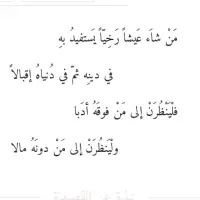 مَنْ شاءَ عَيشاً رَخِيّاً يَستفيدُ بهِ
في دينِهِ ثمّ في دُنياهُ إقبالاً
فلْيَنْظُرَنْ إلى مَنْ فوقَهُ أدَبا
ولْيَنظُرَنْ إلى مَنْ دونَهُ مالا